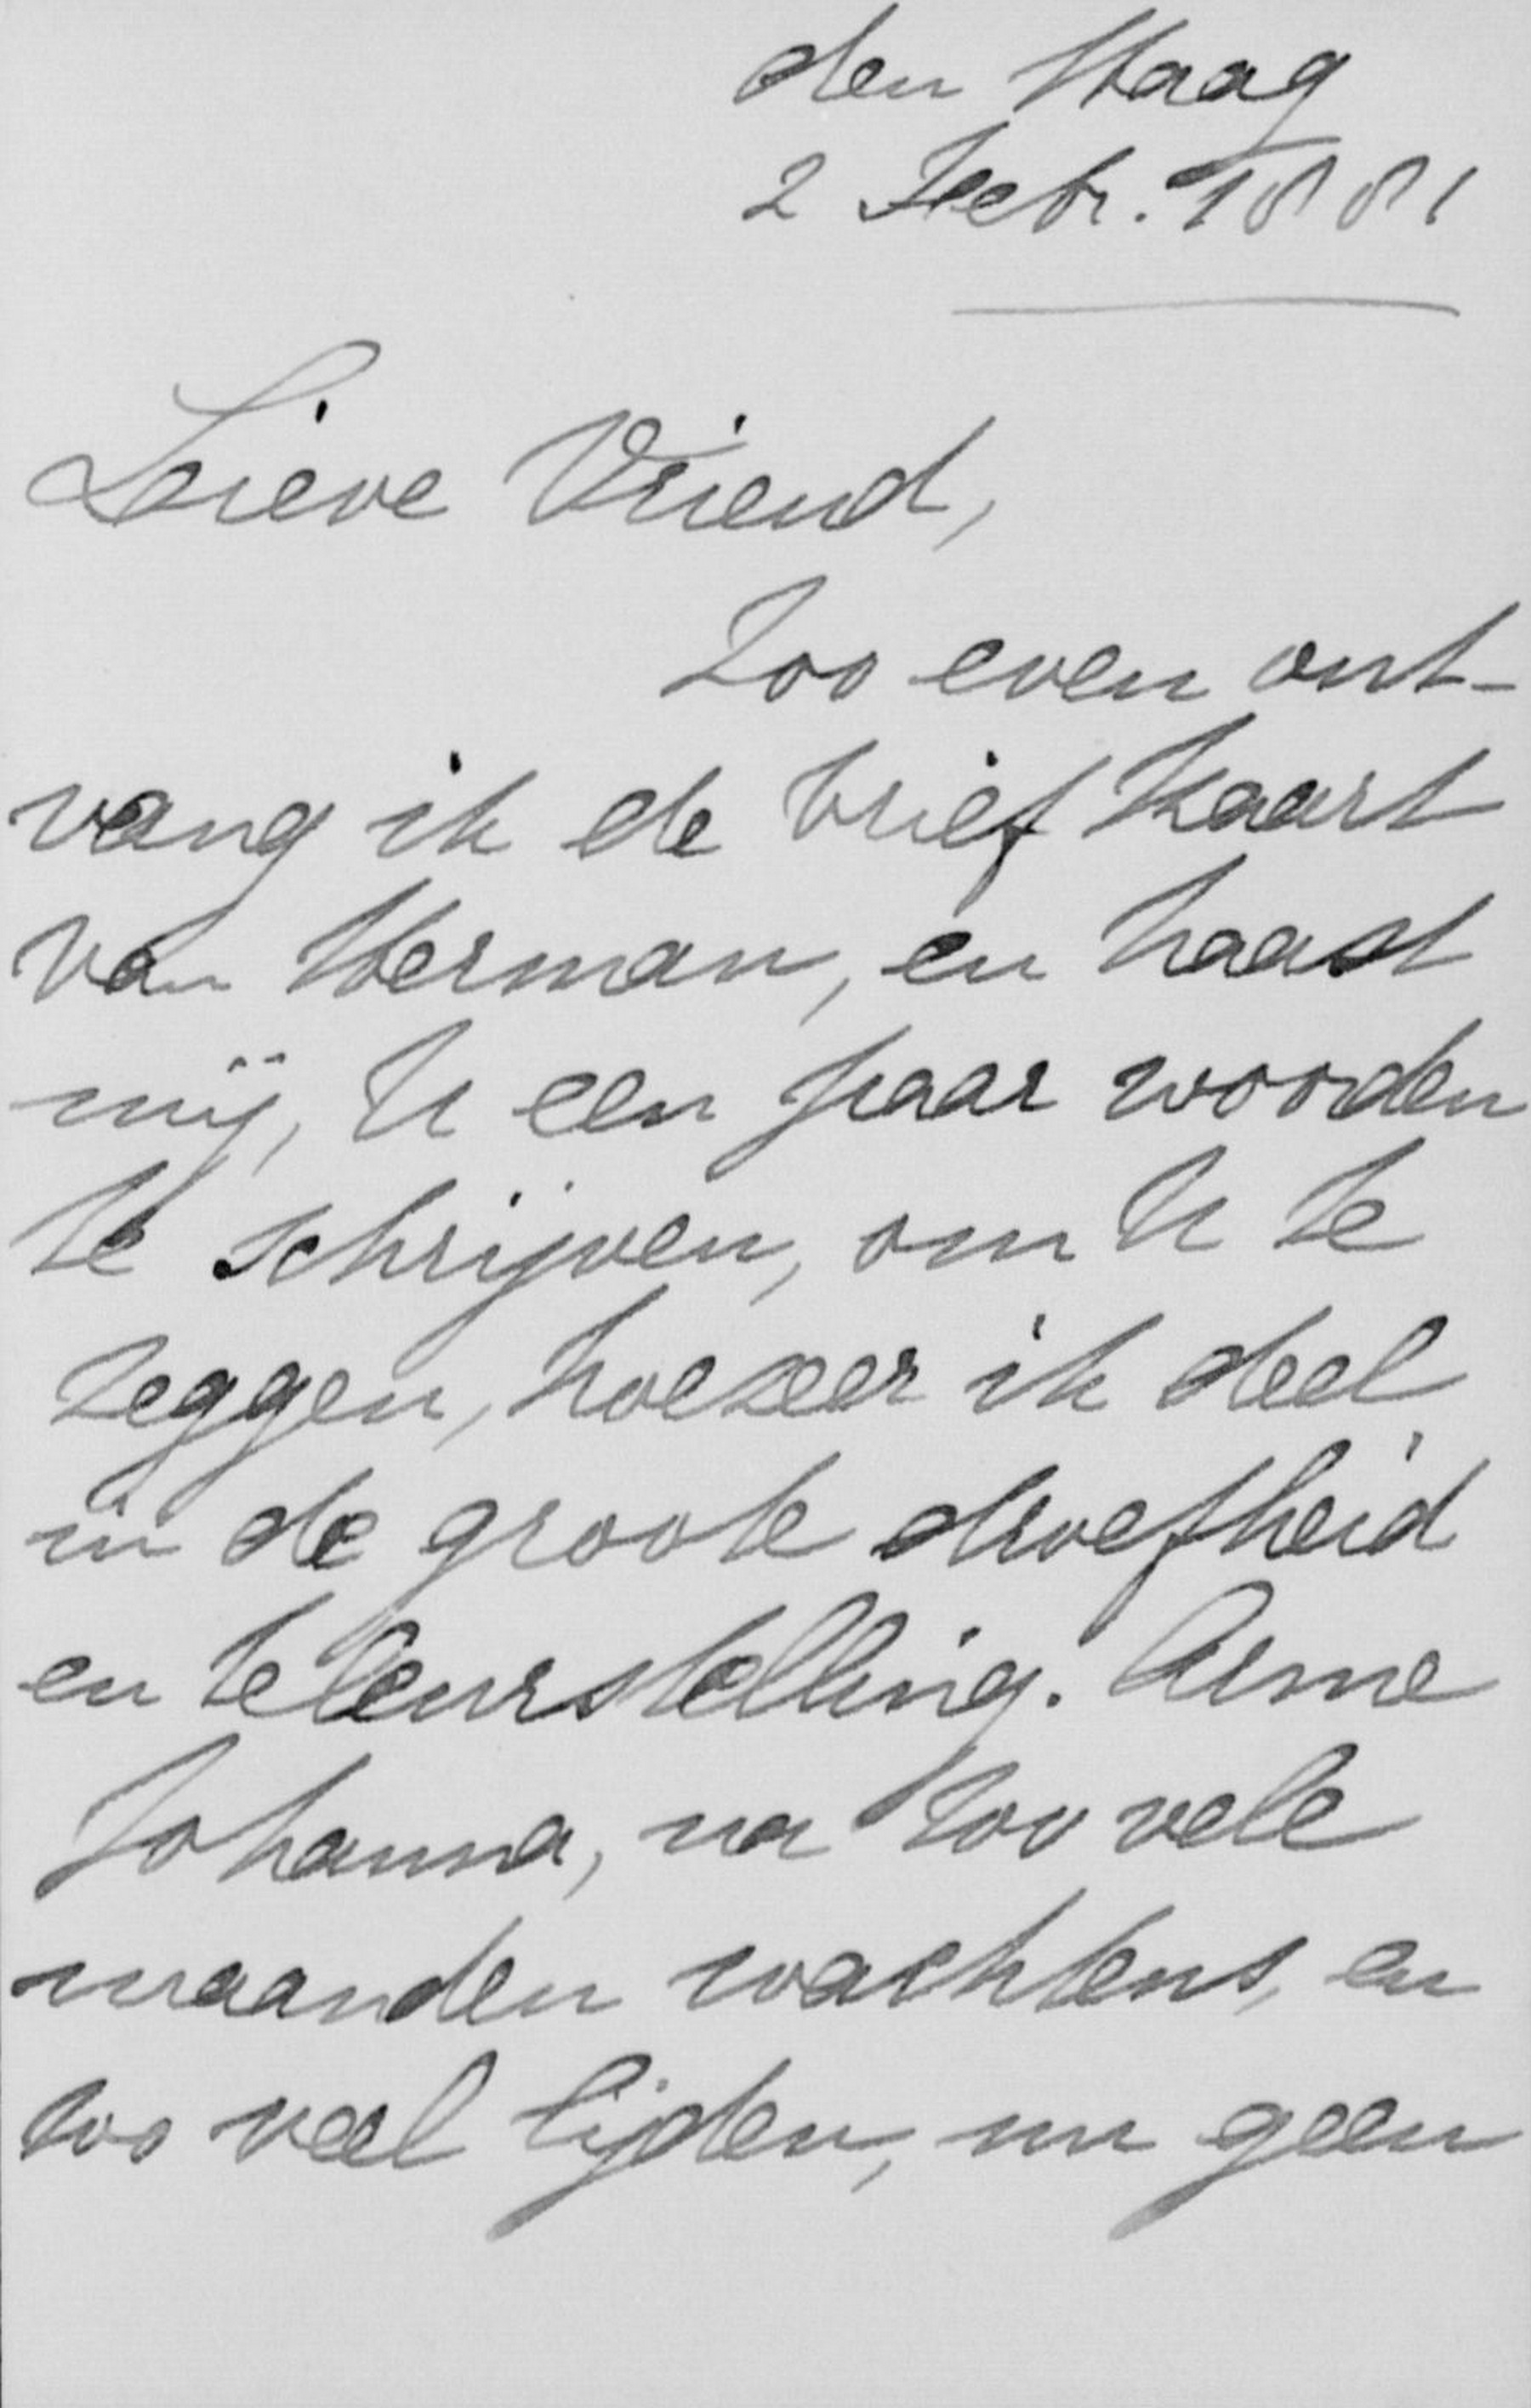 den Haag
2 Febr. 1881
Lieve Vriend,
Zoo even ont-
vang ik de briefkaart
van Herman, en haast
mij, U een paar woorden
te schrijven, om U te
zeggen, hoezeer ik deel
in de groote droefheid
en teleurstelling. Arme
Johanna, na zoo vele
maanden wachtens, en
zoo veel lijden, nu geen